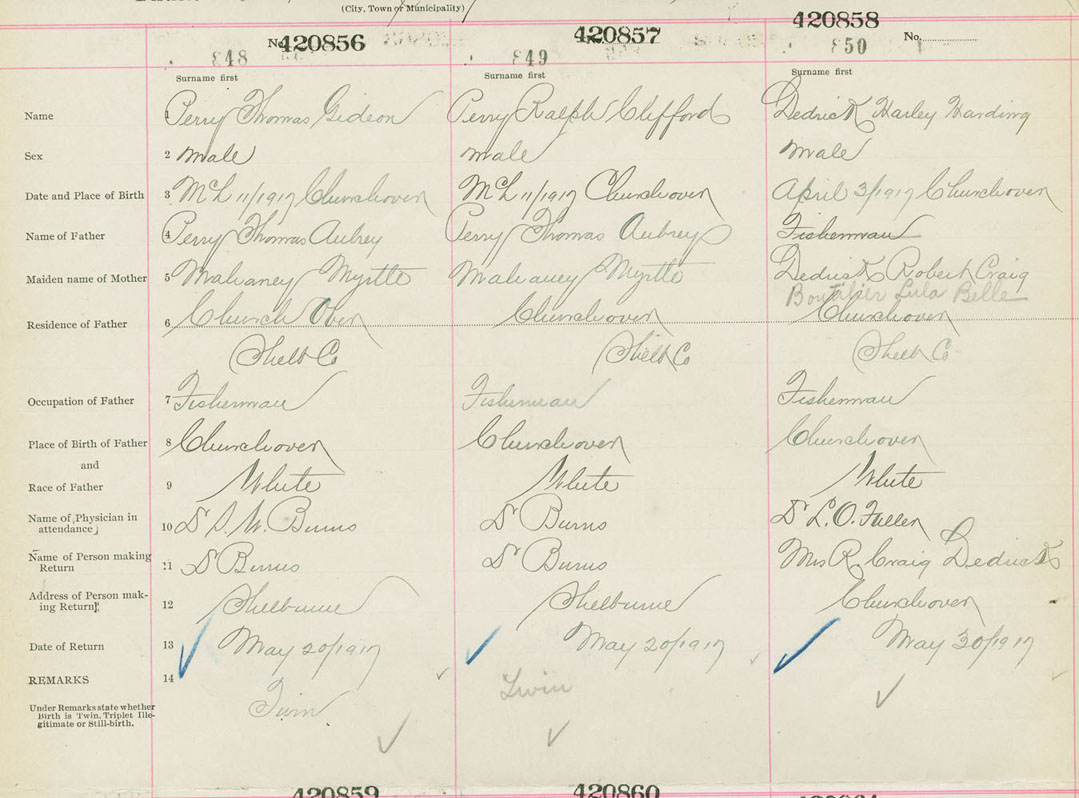 (City, Town or Municipality)
No. 420856
420857
420858
No.
848
849
850
Surname first
Surname first
Surname first
Name 1 Perry Thomas Gideon
Perry Ralph Clifford
Dedrick Harley Harding
Sex 2 male
male
male
Date and Place of Birth 3 Mch 11/1917 Churchover
Mch 11/1917 Churchover
April 3/1917 Churchover
Name of Father 4 Perry Thomas Aubrey
Perry Thomas Aubrey
Fisherman
Maiden name of Mother 5 Mahaney Myrtle
Mahaney Myrtle
Dedrick Robert Craig
Boutilier Lula Belle
Residence of Father 6 Church Over
Churchover
Churchover
Shelb Co
Shelb Co
Shelb Co
Occupation of Father 7 Fisherman
Fisherman
Fisherman
Place of Birth of Father 8 Churchover
Churchover
Churchover
and
Race of Father 9 White
White
White
Name of Physician in
attendance 10 Dr S. W. Burns
Dr Burns
Dr L. O. Fuller
Name of Person making
Return 11 Dr Burns
Dr Burns
Mrs R. Craig Dedrick
Address of Person mak-
ing Return 12 Shelburne
Shelburne
Churchover
Date of Return 13 May 20/1917
May 20/1917
May 30/1917
REMARKS 14
Under Remarks state whether
Birth is Twin, Triplet Ille-
gitimate or Still-birth.
Twin
Twin
420859
420860